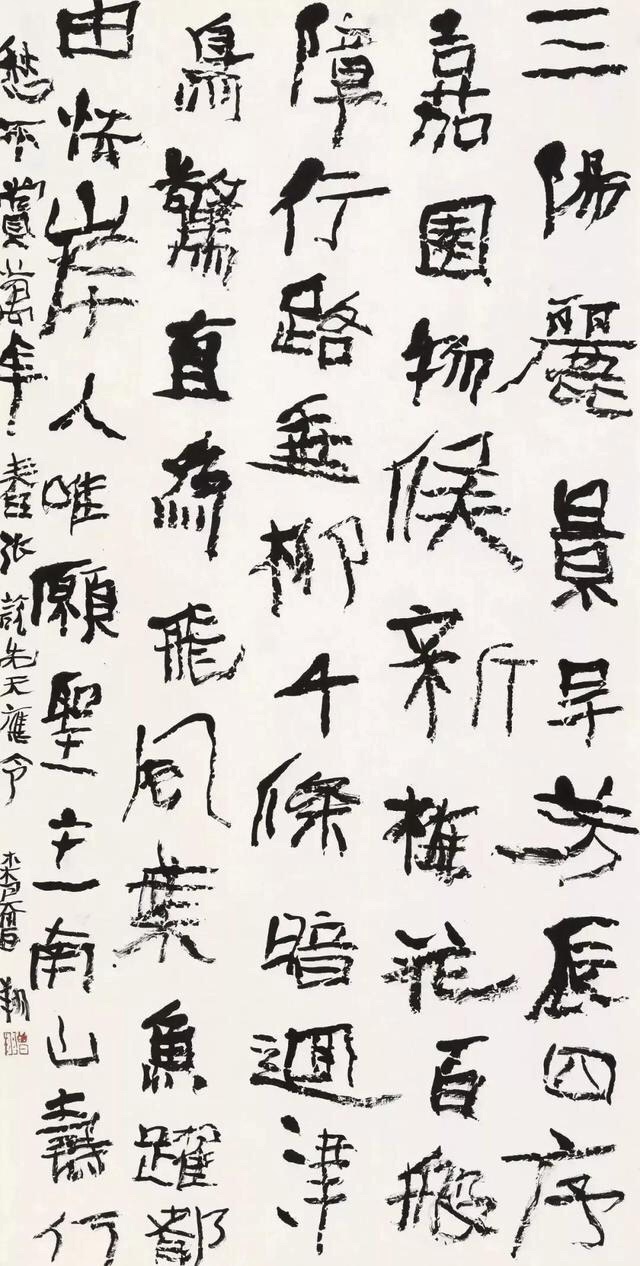 三陽麗景早芳辰四序
嘉園物候新梅花百般
障行路垂柳千條暗迴津
鳥驚直為飛風葉魚躍都
由怯岸人唯願聖主南山壽何
愁不賞萬年春 張說先天應令 翔